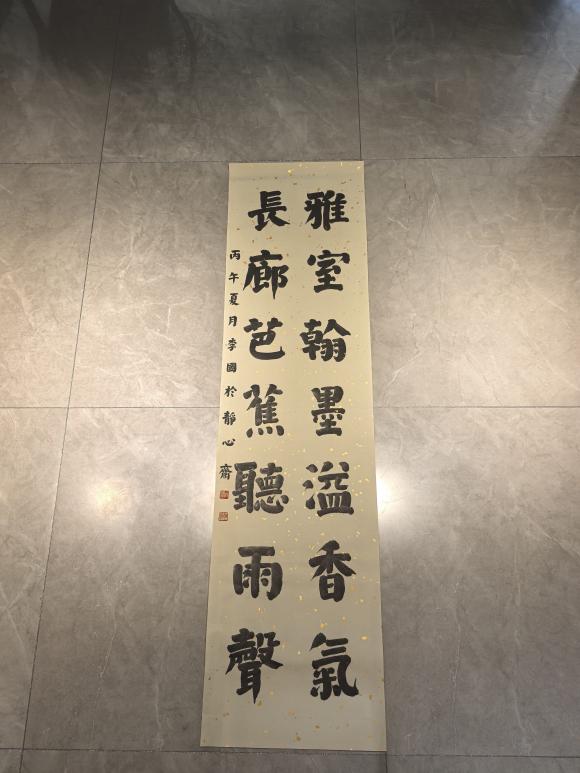 雅室翰墨溢香氣
長廊芭蕉聽雨聲
丙午夏月李國於靜心齋